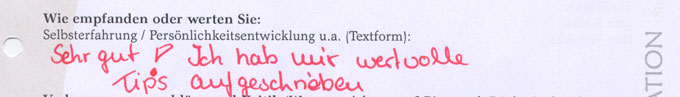 Wie empfanden oder werten Sie:
Selbsterfahrung / Persönlichkeitsentwicklung u.a. (Textform):
Sehr gut! Ich hab mir wertvolle
Tips aufgeschrieben
ATION